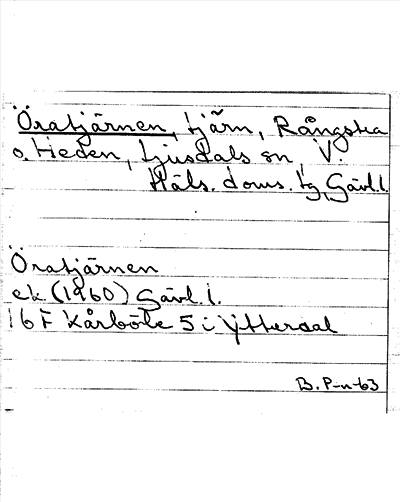 Öratjärnen, tjärn, Rångstra
o. Heden, Ljusdals sn, V.
Häls. doms. tg, Gävl.l.
Öratjärnen
ek (1960) Gävl. l.
16 F Kårböle 5 i Ytterdal
B. P-n-63